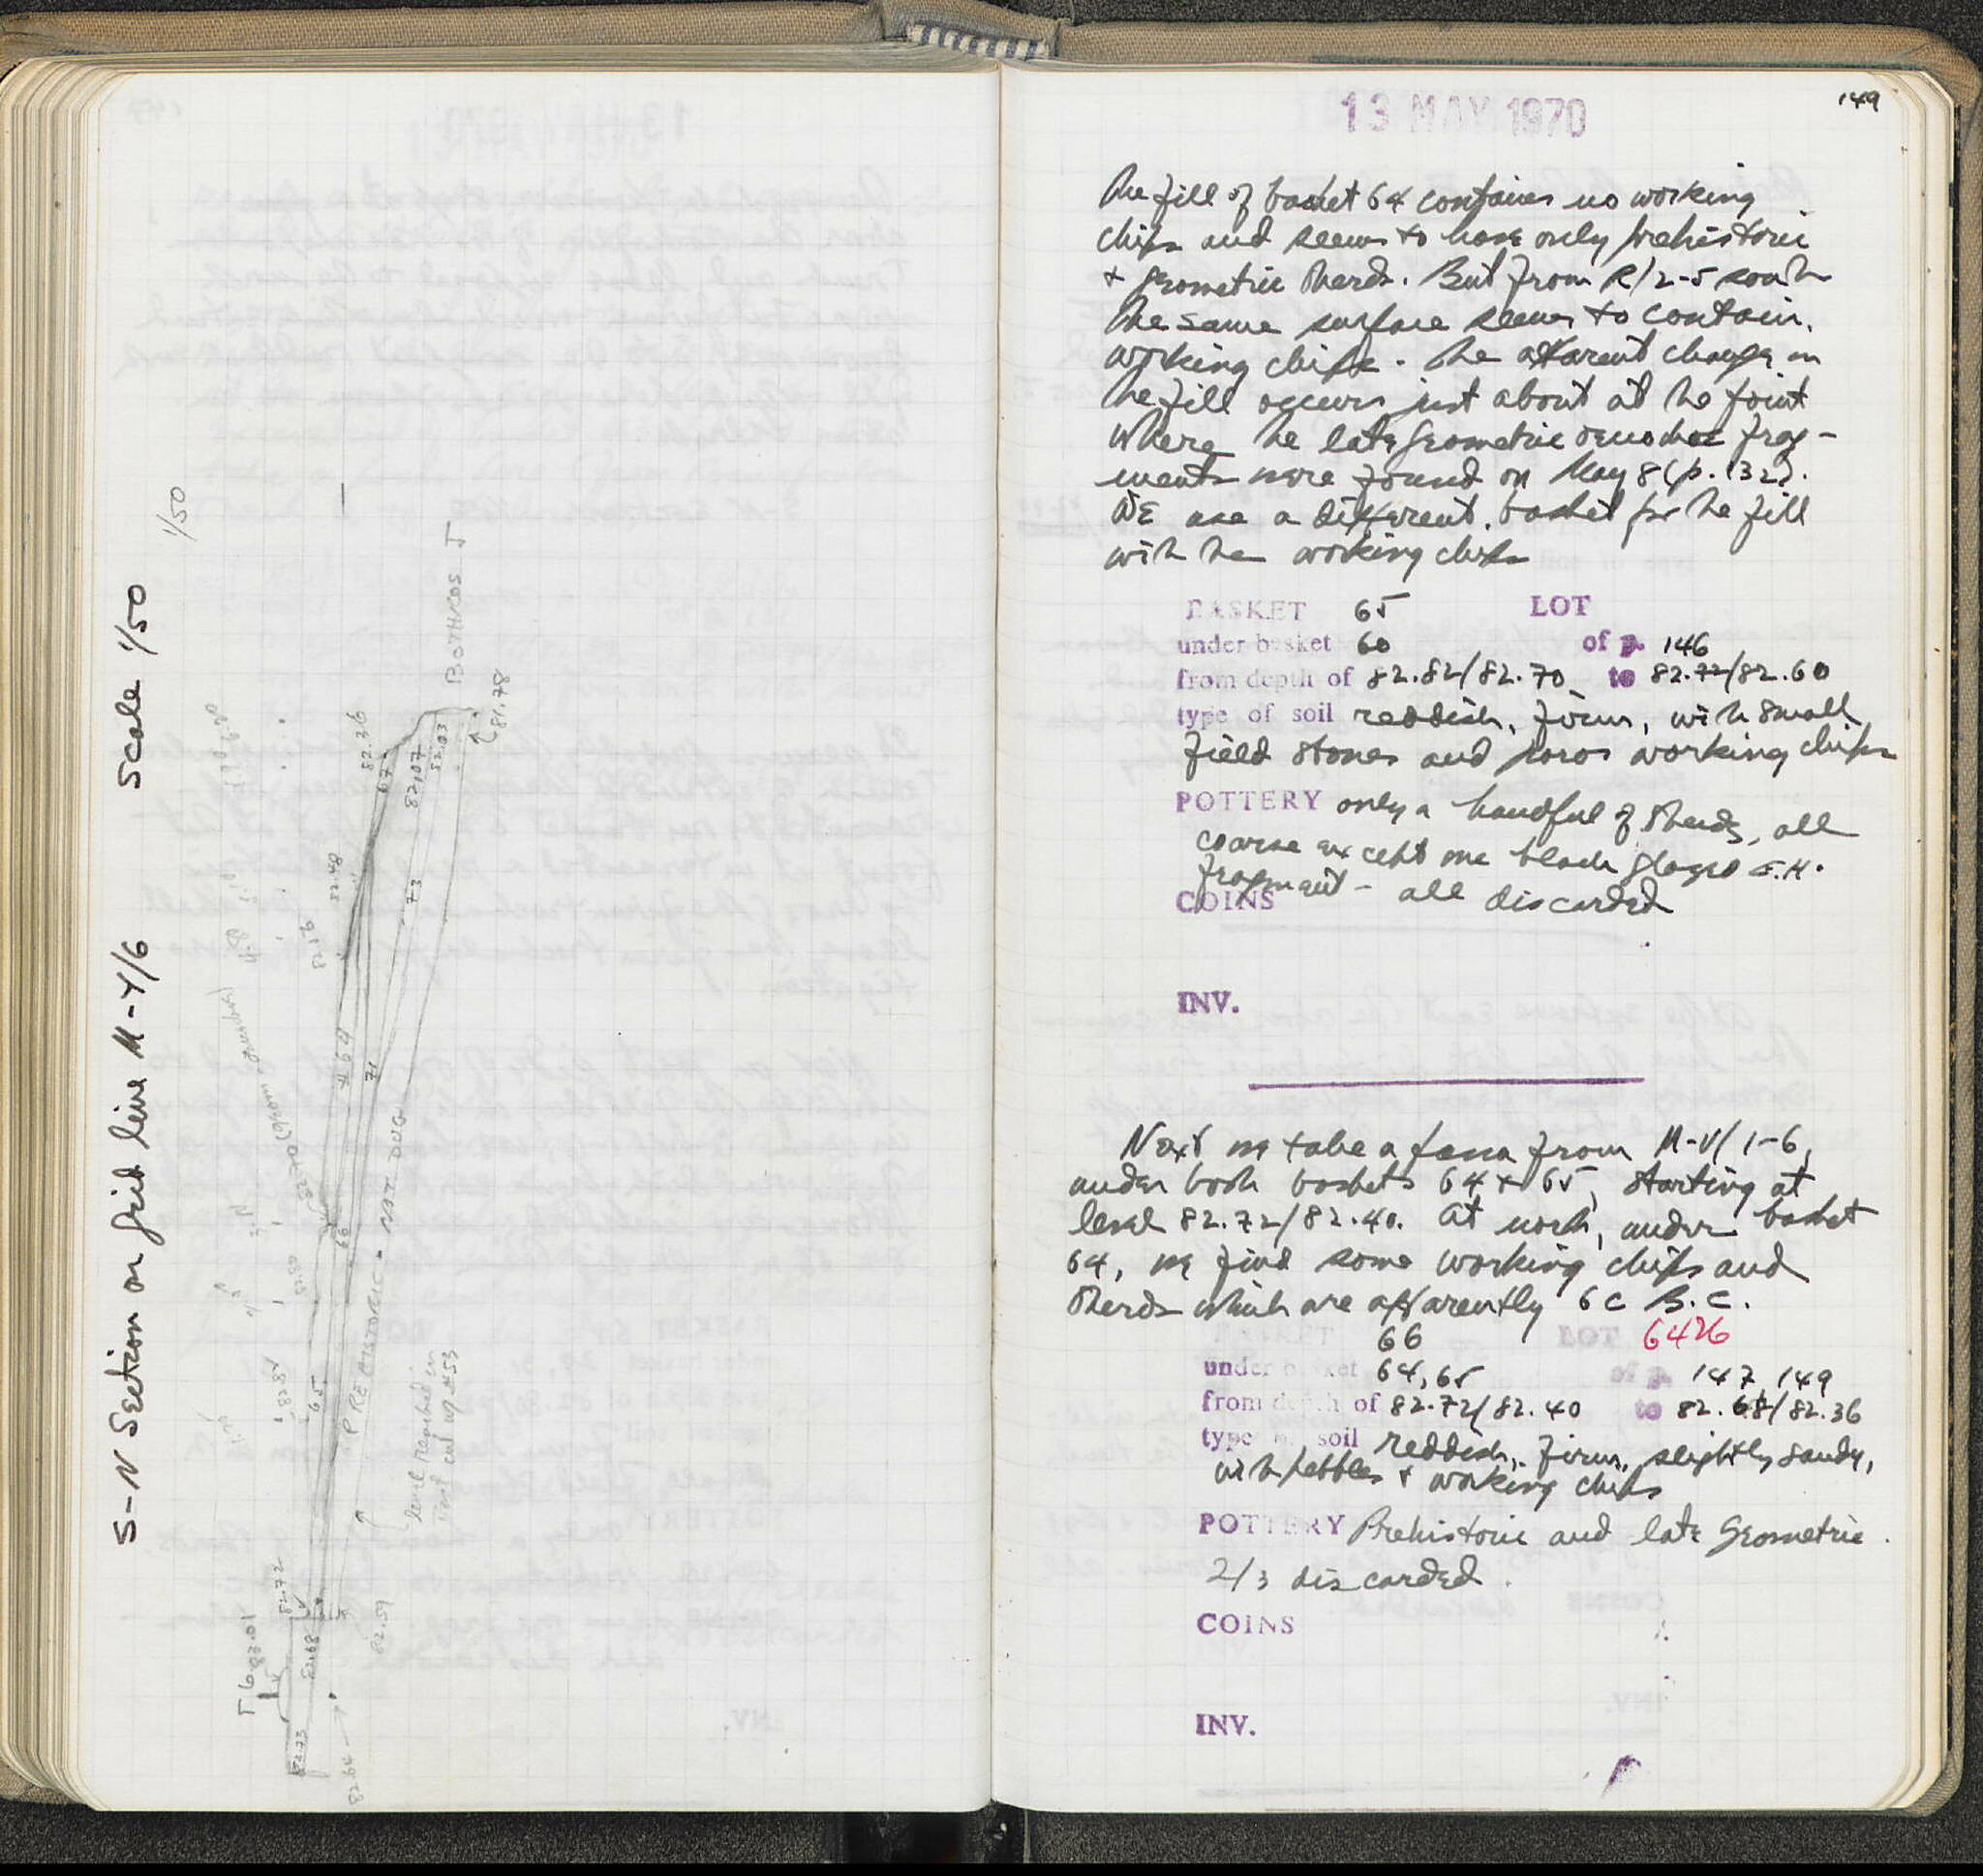 S-N Section on grid line M-Y/6 Scale 1/50
1/50
BOTHROS J
81.78
82.26
67
82.07
82.03
82.48
73
82.76
#64
71
82.70
NOT DUG
66
PREHISTORIC
82.84
65
level reached in
final cut w/ #53
82.72
82.59
T6
83.01
82.68
82.73
82.64
149
13 MAY 1970
The fill of basket 64 contains no working
chips and seems to have only prehistoric
+ geometric sherds. But from R/2-5 south
the same surface seems to contain
working chips. The apparent change in
the fill occurs just about at the point
where the late geometric oenochoe frag-
ments were found on May 8 (p. 132).
We use a different basket for the fill
with the working chips
BASKET 65 LOT
under basket 60 of p. 146
from depth of 82.82/82.70 to 82.72/82.60
type of soil reddish, firm, with small
field stones and poros working chips
POTTERY only a handful of sherds, all
coarse except one black glazed
fragment - all discarded
COINS
INV.
Next we take a passa from M-V/1-6,
under both baskets 64 + 65, starting at
level 82.72/82.40. At north, under basket
64, we find some working chips and
sherds which are apparently 6 C B.C.
BASKET 66 LOT 6426
under basket 64, 65 of p. 147, 149
from depth of 82.72/82.40 to 82.68/82.36
type of soil reddish, firm, slightly sandy,
with pebbles + working chips
POTTERY Prehistoric and late Geometric.
2/3 discarded.
COINS
INV.